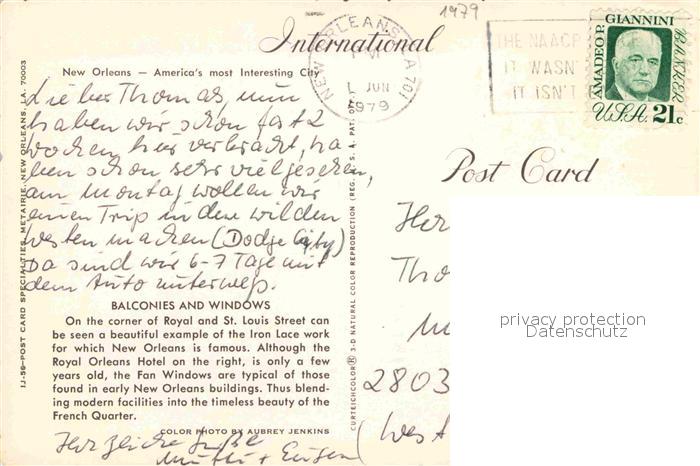 1979
International
NEW ORLEANS, LA 701
PM
1 JUN
1979
THE NAACP
IT WASN'
IT ISN'T
AMADEO P. GIANNINI
BANKER
U.S.A. 21c
New Orleans — America's most Interesting City
Lieber Thomas, nun
haben wir schon fast 2
Wochen hier verbracht, ha-
ben schon sehr viel gesehen,
am Montag wollen wir
einen Trip in den wilden
Westen machen (Dodge City)
Da sind wir 6-7 Tage mit
dem Auto unterwegs.
BALCONIES AND WINDOWS
On the corner of Royal and St. Louis Street can
be seen a beautiful example of the Iron Lace work
for which New Orleans is famous. Although the
Royal Orleans Hotel on the right, is only a few
years old, the Fan Windows are typical of those
found in early New Orleans buildings. Thus blend-
ing modern facilities into the timeless beauty of the
French Quarter.
COLOR PHOTO BY AUBREY JENKINS
Herzliche Grüße
Mutti + Eugen
IJ-56—POST CARD SPECIALTIES, METAIRIE, NEW ORLEANS, LA. 70003
CURTEICHCOLOR® 3-D NATURAL COLOR REPRODUCTION (REG. U.S.A. PAT. OFF.)
Post Card
Her
Tho
2803
(West
privacy protection
Datenschutz